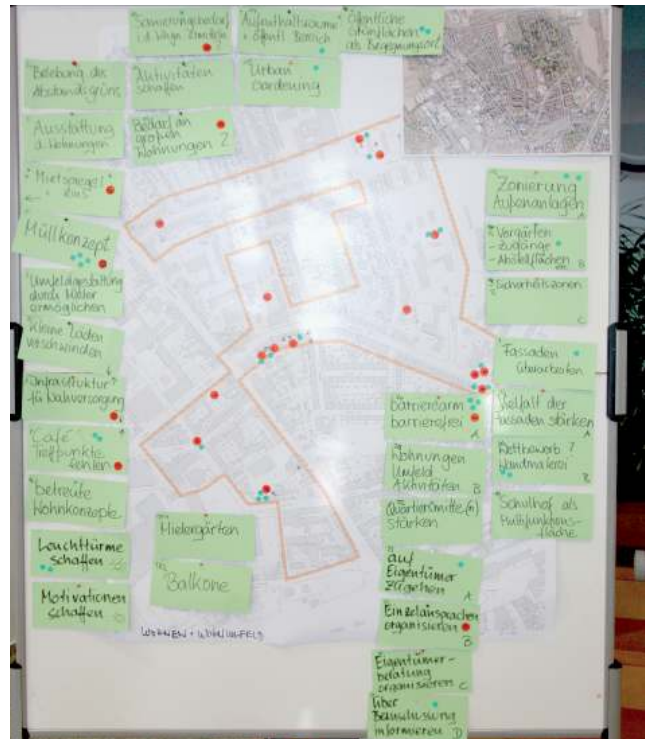 Sanierungsbedarf
Aufenthaltsräume
+ öffentl. Bereich
öffentliche
Grünflächen
als Begegnungsort
Belebung des
Abstandsgrüns
Aktivitäten
schaffen
Urban
Gardening
Ausstattung
d. Wohnungen
Bedarf an
großen
Wohnungen ?
Mietspiegel
Müllkonzept
Umfeldgestaltung
durch Mieter
ermöglichen
Kleine Läden
verschwinden
Infrastruktur
für Nahversorgung
Café
Treffpunkte
fehlen
betreute
Wohnkonzepte
Leuchttürme
schaffen
Motivationen
schaffen
Mietergärten
Balkone
WOHNEN + WOHNUMFELD
Zonierung
Außenanlagen
A
Vorgärten
- Zugänge
- Abstellflächen
B
Sicherheitszonen
C
Fassaden
überarbeiten
barrierearm
barrierefrei
A
Vielfalt der
Fassaden stärken
A
Wohnungen
Umfeld
Aktivitäten
B
Wettbewerb ?
Wandmalerei
B
Quartiersmitte(n)
stärken
Schulhof als
Multifunktions-
fläche
auf
Eigentümer
zugehen
A
Einzelansprachen
organisieren
B
Eigentümer-
beratung
organisieren
C
über
Bezuschussung
informieren
D